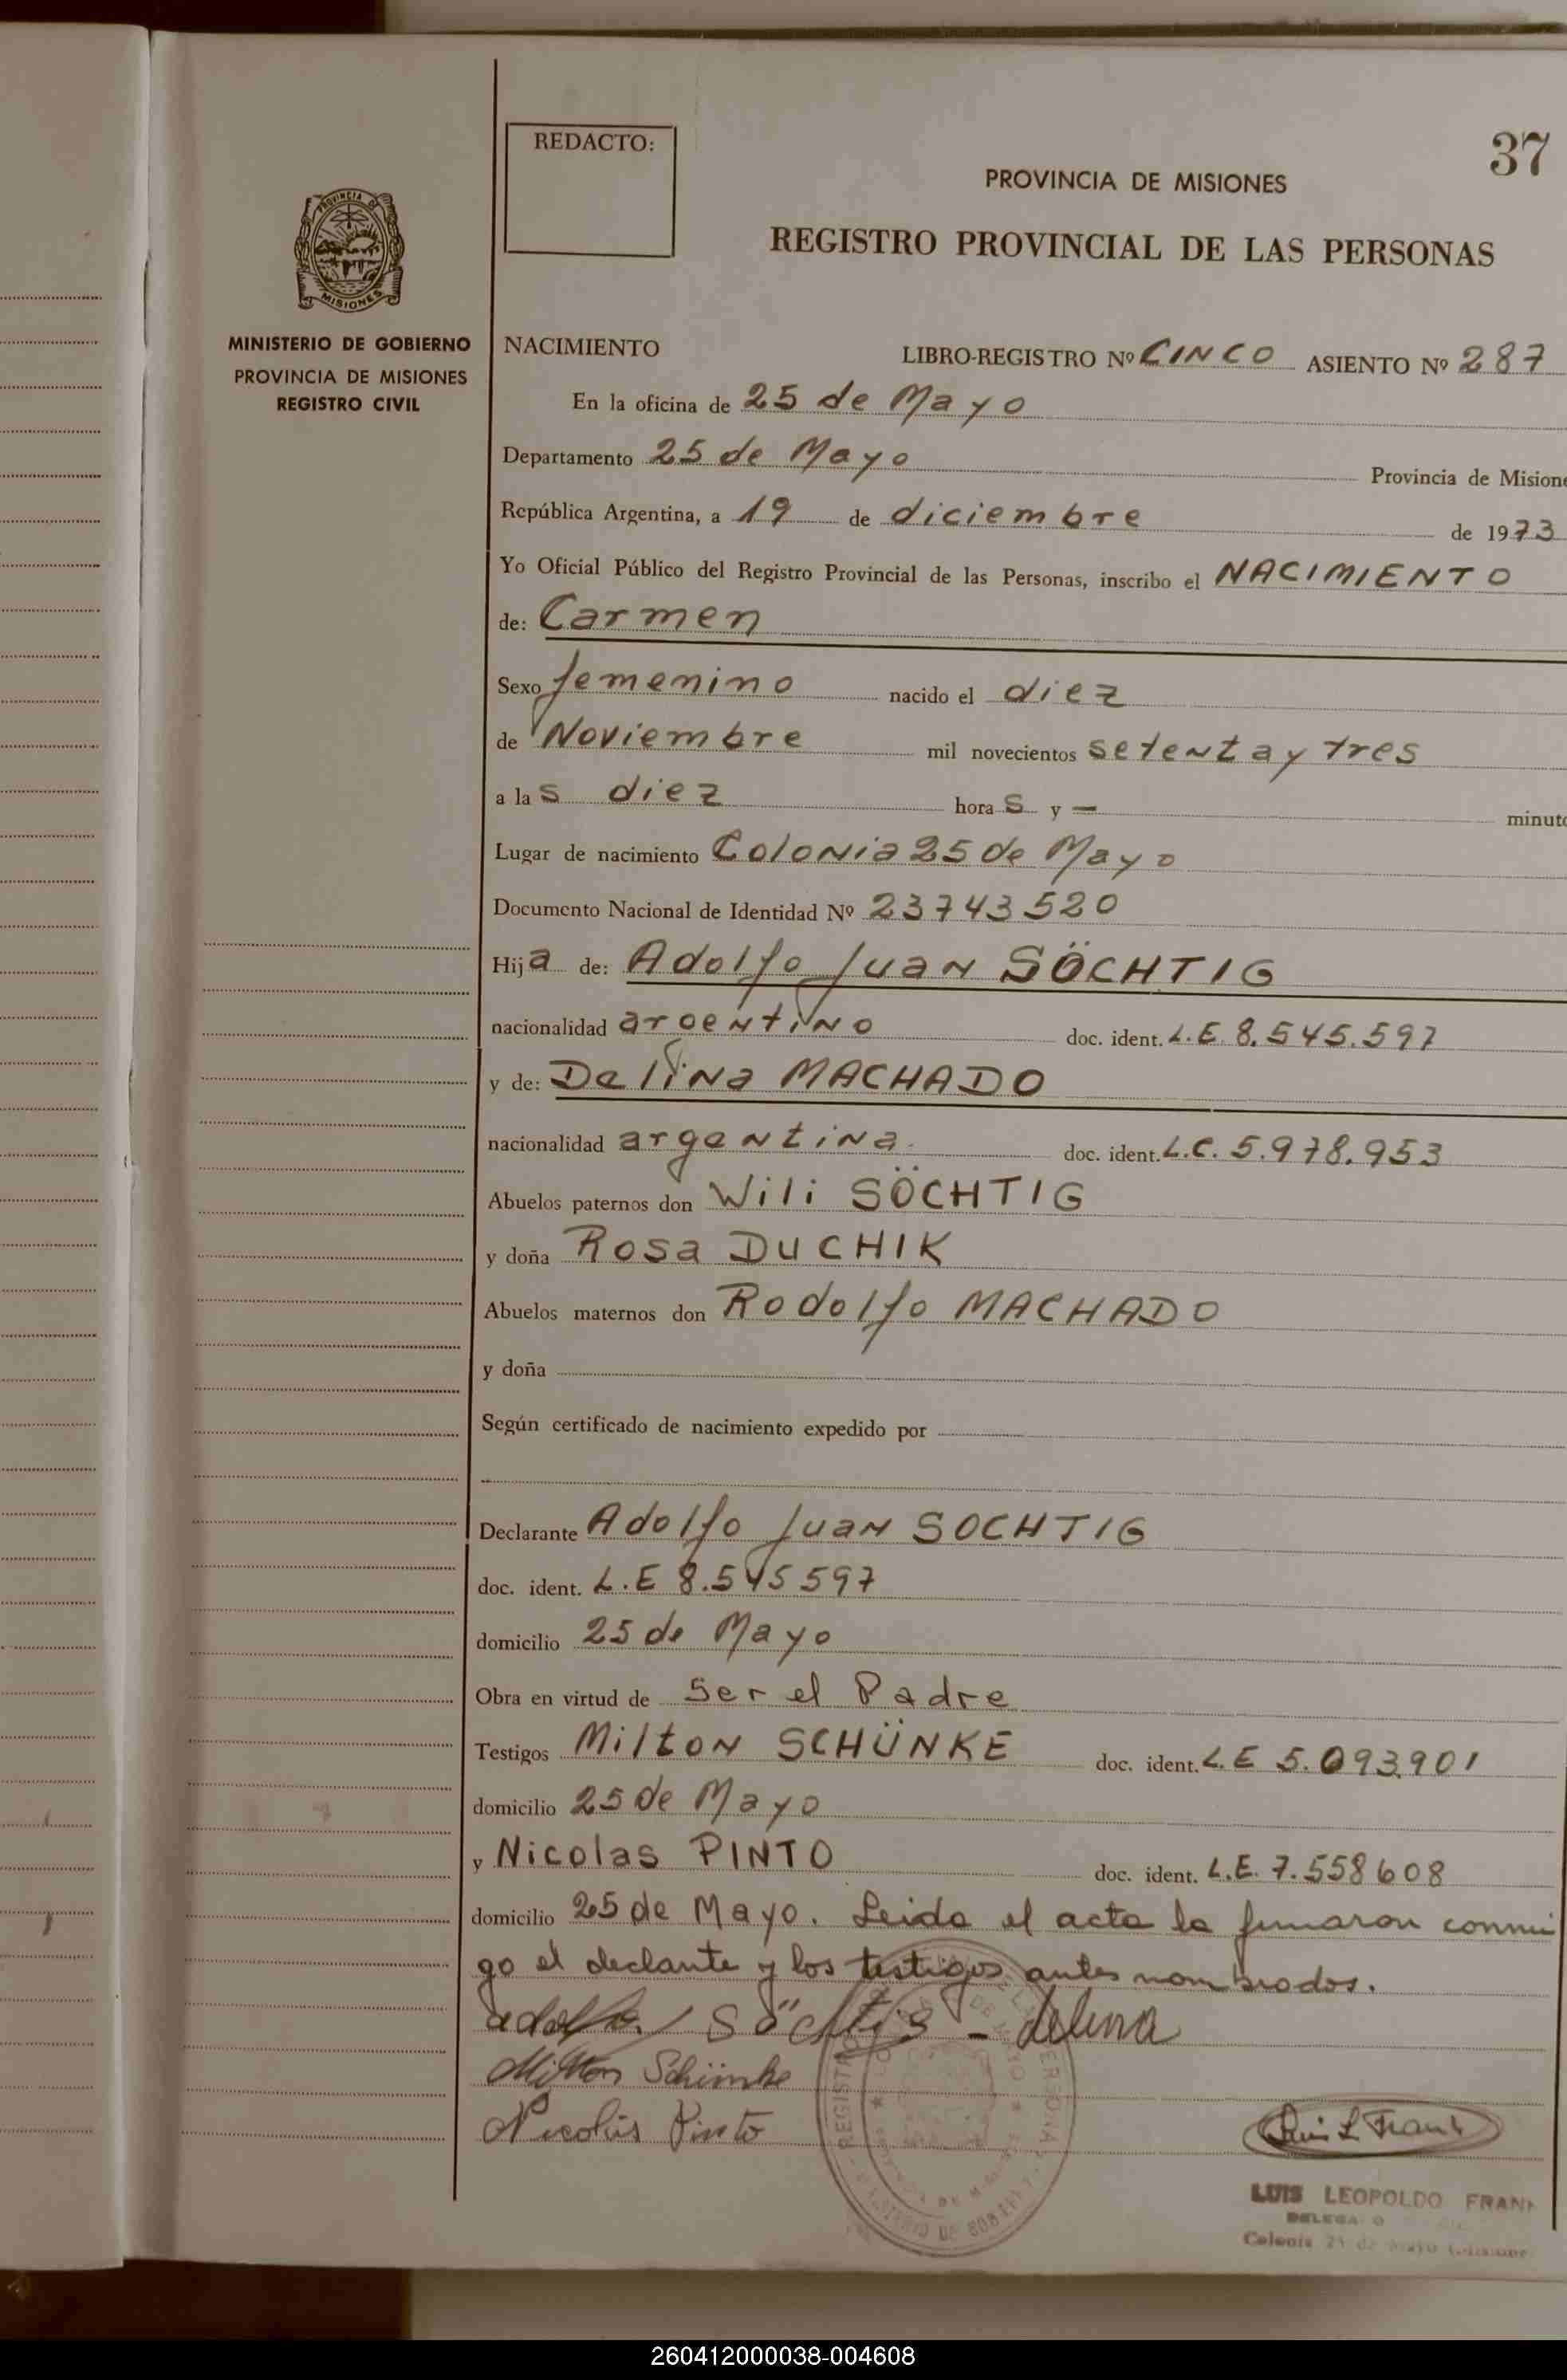 REDACTO:
37
PROVINCIA DE MISIONES
REGISTRO PROVINCIAL DE LAS PERSONAS
PROVINCIA DE
MISIONES
MINISTERIO DE GOBIERNO
PROVINCIA DE MISIONES
REGISTRO CIVIL
NACIMIENTO LIBRO-REGISTRO Nº CINCO ASIENTO Nº 287
En la oficina de 25 de Mayo
Departamento 25 de Mayo Provincia de Misione
República Argentina, a 19 de diciembre de 1973
Yo Oficial Público del Registro Provincial de las Personas, inscribo el NACIMIENTO
de: Carmen
Sexo femenino nacido el diez
de Noviembre mil novecientos setenta y tres
a las diez horas y — minuto
Lugar de nacimiento Colonia 25 de Mayo
Documento Nacional de Identidad Nº 23743520
Hija de: Adolfo Juan SÖCHTIG
nacionalidad argentino doc. ident. L.E 8.545.597
y de: Delina MACHADO
nacionalidad argentina doc. ident. L.C. 5.978.953
Abuelos paternos don Wili SÖCHTIG
y doña Rosa DUCHIK
Abuelos maternos don Rodolfo MACHADO
y doña
Según certificado de nacimiento expedido por
Declarante Adolfo Juan SOCHTIG
doc. ident. L.E 8.545597
domicilio 25 de Mayo
Obra en virtud de Ser el Padre
Testigos Milton SCHÜNKE doc. ident. L.E 5.093.901
domicilio 25 de Mayo
y Nicolas PINTO doc. ident. L.E. 7.558608
domicilio 25 de Mayo. Leida el acta la firmaron conmi
go el declante y los testigos antes nombrados.
adolfo J Söchtig - delina
Milton Schünke
Nicolás Pinto
Luis L Frank
LUIS LEOPOLDO FRANK
DELEGADO
Colonia 25 de Mayo
260412000038-004608